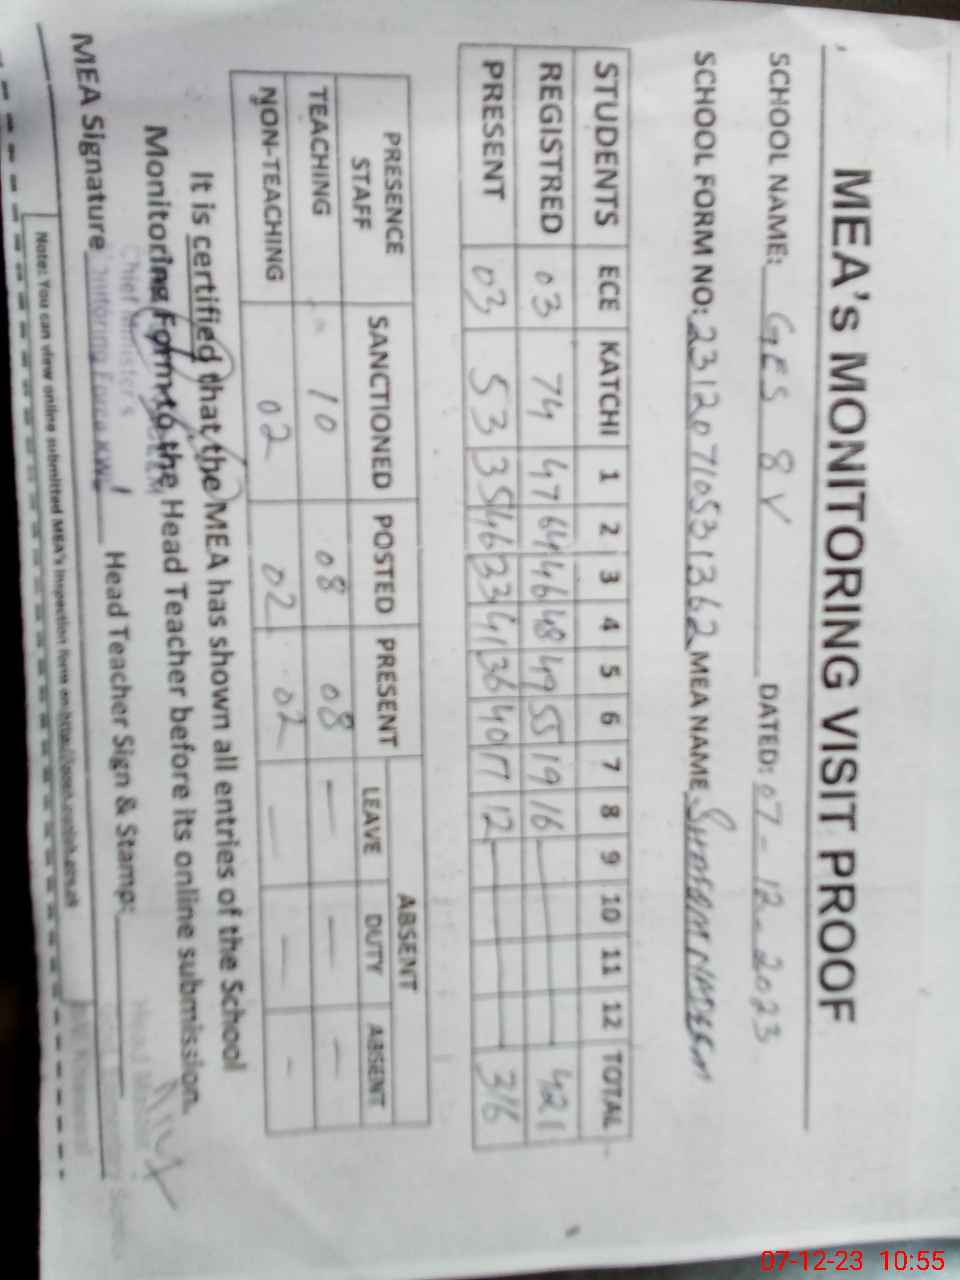 MEA's MONITORING VISIT PROOF
SCHOOL NAME: GES 8 V DATED: 07-12-2023
SCHOOL FORM NO: 23120710531362 MEA NAME NADEEM
STUDENTS ECE KATCHI 1 2 3 4 5 6 7 8 9 10 11 12 TOTAL
REGISTRED 03 74 47 64 46 48 49 55 19 16 421
PRESENT 03 53 35 46 33 41 36 40 17 12 316
PRESENCE STAFF SANCTIONED POSTED PRESENT ABSENT
LEAVE DUTY ABSENT
TEACHING 10 08 08 — — —
NON-TEACHING 02 02 02 — — -
It is certified that the MEA has shown all entries of the School
Monitoring Form to the Head Teacher before its online submission.
Chief Minister's
MEA Signature Monitoring Force K.W. Head Teacher Sign & Stamp:
Head Master
Note: You can view online submitted MEA's inspection form on
07-12-23 10:55